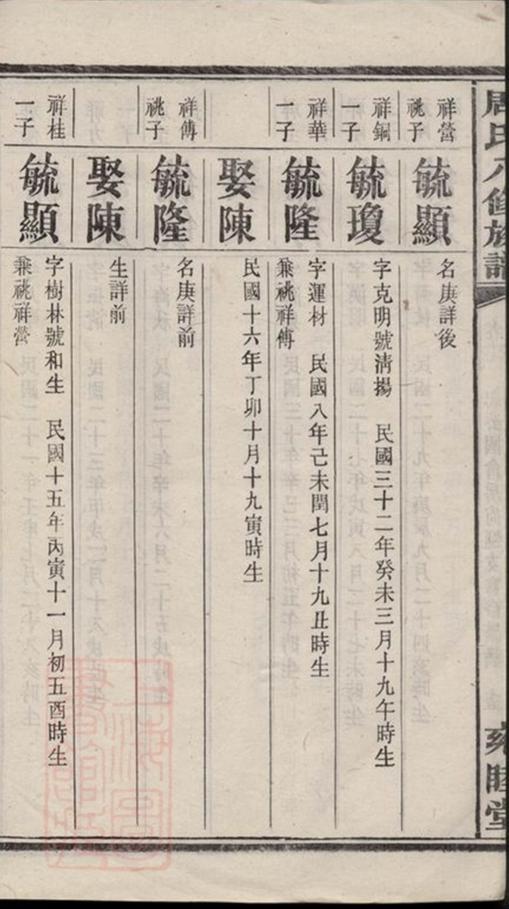 周氏八修族譜
雍睦堂
祥營
祧子
毓顯
名庚詳後
祥銅
一子
毓瓊
字克明號清揚 民國三十二年癸未三月十九午時生
祥華
一子
毓隆
字運材 民國八年己未閏七月十九丑時生
兼祧祥傳
娶陳
民國十六年丁卯十月十九寅時生
祥傳
祧子
毓隆
名庚詳前
娶陳
生詳前
祥桂
一子
毓顯
字樹林號和生 民國十五年丙寅十一月初五酉時生
兼祧祥營